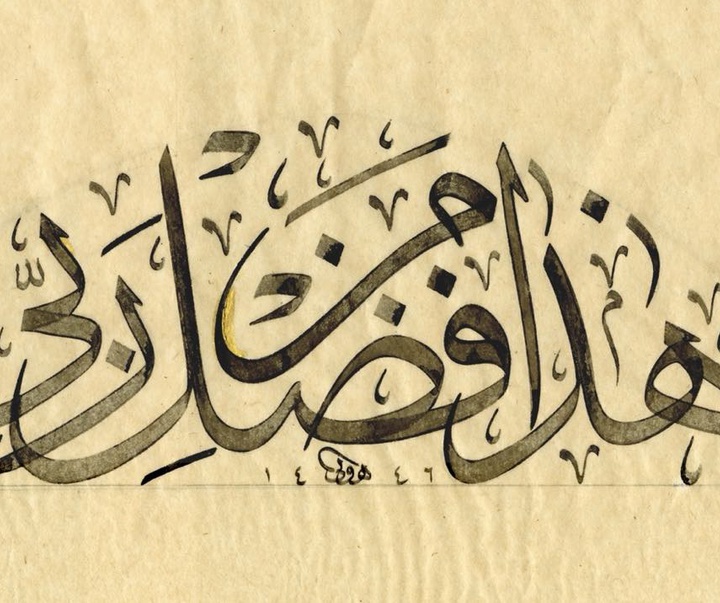 هذا من فضل ربي
١٤ ٤٦